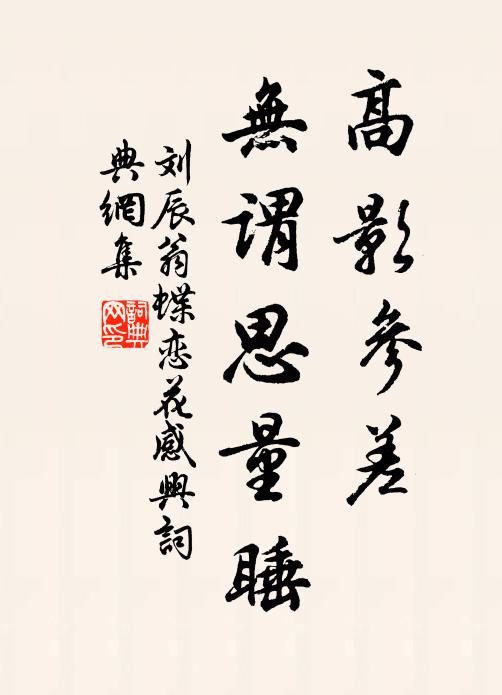 高影參差
無謂思量睡
刘辰翁蝶恋花感興詞
典網集
詞典
网印